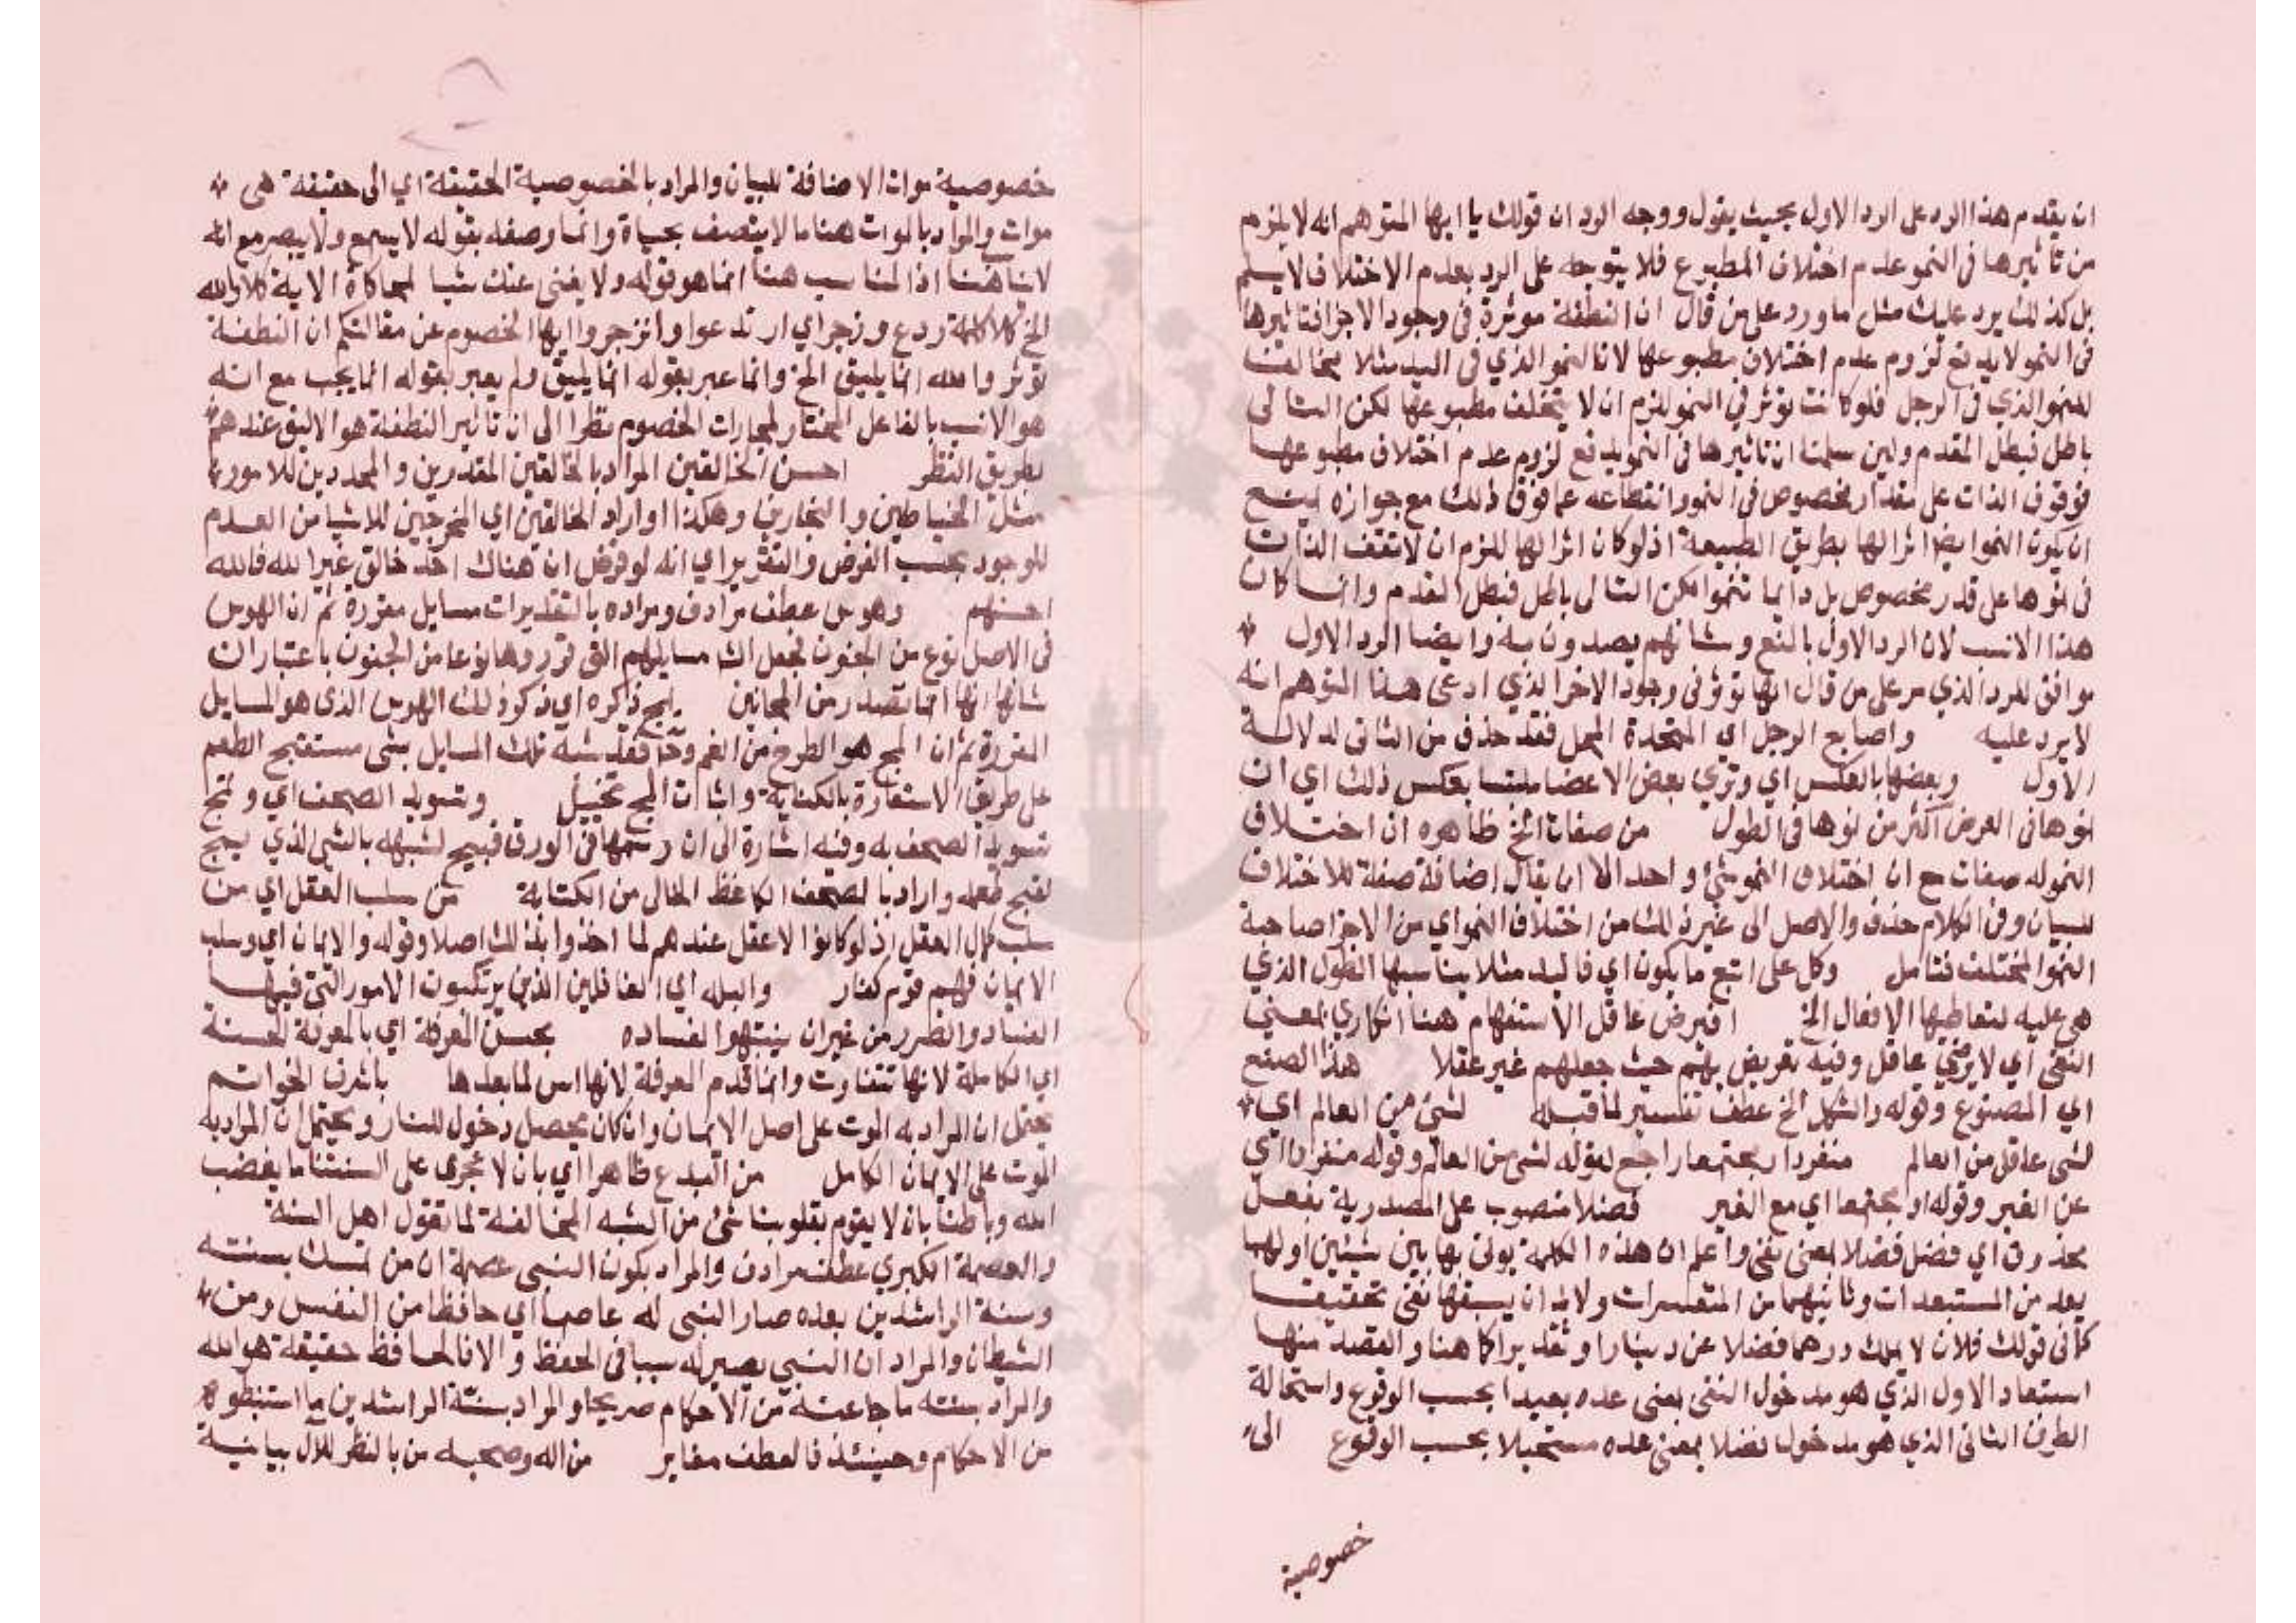 ان يقدم هذا الرد على الرد الاول بحيث يقول ووجه الرد ان قولك يا ايها المتوهم انه لا يلزم
من تاثيرها فى النمو عدم اختلاف المطبوع فلا يتوجه على الرد بعدم الاختلاف لا يسلم
بل كذلك يرد عليك مثل ما ورد على من قال ان النطفة موثرة فى وجود الاجزا فتاثيرها
فى النمو لا يدفع لزوم عدم اختلاف مطبوعها لان النمو الذي فى اليد مثلا يخالف
للنمو الذي فى الرجل فلو كانت توثر في النمو للزم ان لا يختلف مطبوعها لكن التالى
باطل فبطل المقدم ولين سلمت ان تاثيرها فى النمو يدفع لزوم عدم اختلاف مطبوعها
فوقوف الذات على مقدار مخصوص فى النمو وانقطاعه عما فوق ذلك مع جوازه يمنع
ان يكون النمو ايضا اثرا لها بطريق الطبيعة اذ لو كان اثرا لها للزم ان لا تقف الذات
فى نموها على قدر مخصوص بل دايما تنموا لكن التالى باطل فبطل المقدم وانما كان
هذا الانسب لان الرد الاول بالمنع وشانهم يصدرون به وايضا الرد الاول
موافق للرد الذي مر على من قال انها توثر فى وجود الاجزا الذي ادعى هذا المتوهم انه
لا يرد عليه واصابع الرجل اي المتحدة المحل فقد حذف من الثانى لدلالة
الاول وبعضها بالعكس اي وترى بعض الاعضا ملتبسا بعكس ذلك اي ان
نموها فى العرض اكثر من نموها فى الطول من صفات الخ ظاهره ان اختلاف
النمو له صفات مع ان اختلاف النمو شئ واحد الا ان يقال اضافة صفة للاختلاف
للبيان وفى الكلام حذف والاصل الى غير ذلك من اختلاف النمو اي من الاجزا صاحبة
النمو المختلف فتامل وكل على اتبع ما يكون اي فاليد مثلا يناسبها الطول الذي
هى عليه لتعاطيها الافعال الخ افيرض عاقل الاستفهام هنا انكاري بمعنى
النفى اي لا يرضى عاقل وفيه تعريض بهم حيث جعلهم غير عقلا هذا الصنع
اي المصنوع وقوله والشكل الخ عطف تفسير لما قبله لشئ من العالم اي
لشى عاقل من العالم منفردا او مجتمعا راجع لقوله لشى من العالم وقوله منفردا اي
عن الغير وقوله او مجتمعا اي مع الغير فضلا منصوب على المصدرية بفعل
محذوف اي فضل فضلا بمعنى بقى واعلم ان هذه الكلمة يوتى بها بين شيئين اولهما
يعد من المستبعدات وثانيهما من المتعسرات ولابد ان يسبقها نفى تحقيقا
كما فى قولك فلان لا يملك درهما فضلا عن دينار او تقديرا كما هنا والقصد منها
استبعاد الاول الذي هو مدخول النفى بمعنى عده بعيدا بحسب الوقوع واستحالة
الطرف الثانى الذي هو مدخول فضلا بمعنى عده مستحيلا بحسب الوقوع الى
خصوصية
خصوصية موات الاضافة للبيان والمراد بالخصوصية الحقيقة اي الى حقيقة هى
موات والمراد بالموات هنا ما لا يتصف بحياة وانما وصفه بقوله لا يسمع ولا يبصر مع انه
هنا اذ المناسب هنا انما هو قوله ولا يغنى عنك شيا لمحاكاة الاية كلا والله
الخ كلا كلمة ردع وزجر اي ارتدعوا وانزجروا ايها الخصوم عن مقالتكم ان النطفة
توثر والله انما يليق الخ وانما عبر بقوله انما يليق ولم يعبر بقوله انما يجب مع انه
هو الانسب بالفاعل المختار لمجارات الخصوم نظرا الى ان تاثير النطفة هو الاليق عندهم
بطريق النظر احسن الخالقين المراد بالخالقين المقدرين والمحددين للامور
مثل الخياطين والنجارين وهكذا او اراد الخالقين اي المخرجين للاشيا من العدم
للوجود بحسب الفرض والتقدير اي انه لو فرض ان هناك احد خالق غير الله فالله
احسنهم وهوس عطف مرادف ومراده بالتقديرات مسايل مقررة ثم ان الهوس
فى الاصل نوع من الجنون فجعل تلك مسايلهم التى قرروها نوعا من الجنون باعتبار ان
شانها انها انما تصدر من المجانين يمج ذكره اي ذكر ذلك الهوس الذى هو المسايل
المقررة ثم ان المج هو الطرح من الفم وح فقد شبه تلك المسايل بشى مستقبح الطعم
على طريق الاستعارة بالكناية واثبات المج تخييل وتسويد الصحف اي ويمج
تسويد الصحف به وفيه اشارة الى ان رسمها فى الورق قبيح لشبهه بالشى الذي يمج
لقبح طعمه واراد بالصحف الكاغظ الخالى من الكتابة من سلب العقل اي من
سلب كمال العقل اذ لو كانوا لا عقل عندهم لما اخذوا بذلك اصلا وقوله والايمان اي وسلب
الايمان فهم قوم كفار والبله اي الغافلين الذين يرتكبون الامور التى فيها
الفساد والضرر من غير ان ينتبهوا لفساده بحسن المعرفة اي بالمعرفة الحسنة
اي الكاملة لانها تتفاوت وانما قدم المعرفة لانها اس لما بعدها باشرف الخواتم
يحتمل ان المراد به الموت على اصل الايمان وان كان يحصل دخول للنار ويحتمل ان المراد به
الموت على الايمان الكامل من البدع ظاهرا اي بان لا يجرى على السنتنا ما يغضب
الله وباطنا بان لا يقوم بقلوبنا شئ من الشبه المخالفة لما تقول اهل السنة
والعصمة الكبرى عطف مرادف والمراد بكون النبى عصمة ان من تمسك بسنته
وسنة الراشدين بعده صار النبى له عاصما اي حافظا من النفس ومن
الشيطان والمراد ان النبى يصير له سببا فى الحفظ والا فالحافظ حقيقة هو الله
والمراد بسنته ما جا عنه من الاحكام صريحا والمراد بسنة الراشدين ما استنبطوه
من الاحكام وحينئذ فالعطف مغاير من اله وصحبه من بالنظر للال بيانية